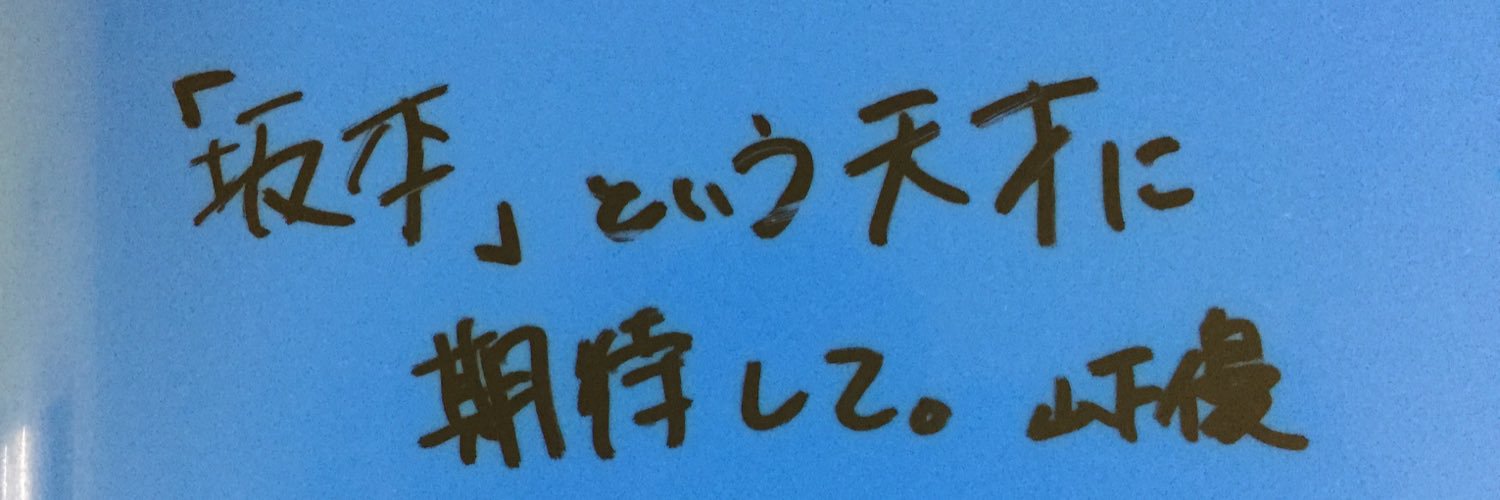 「坂本」という天才に
期待して。山下優